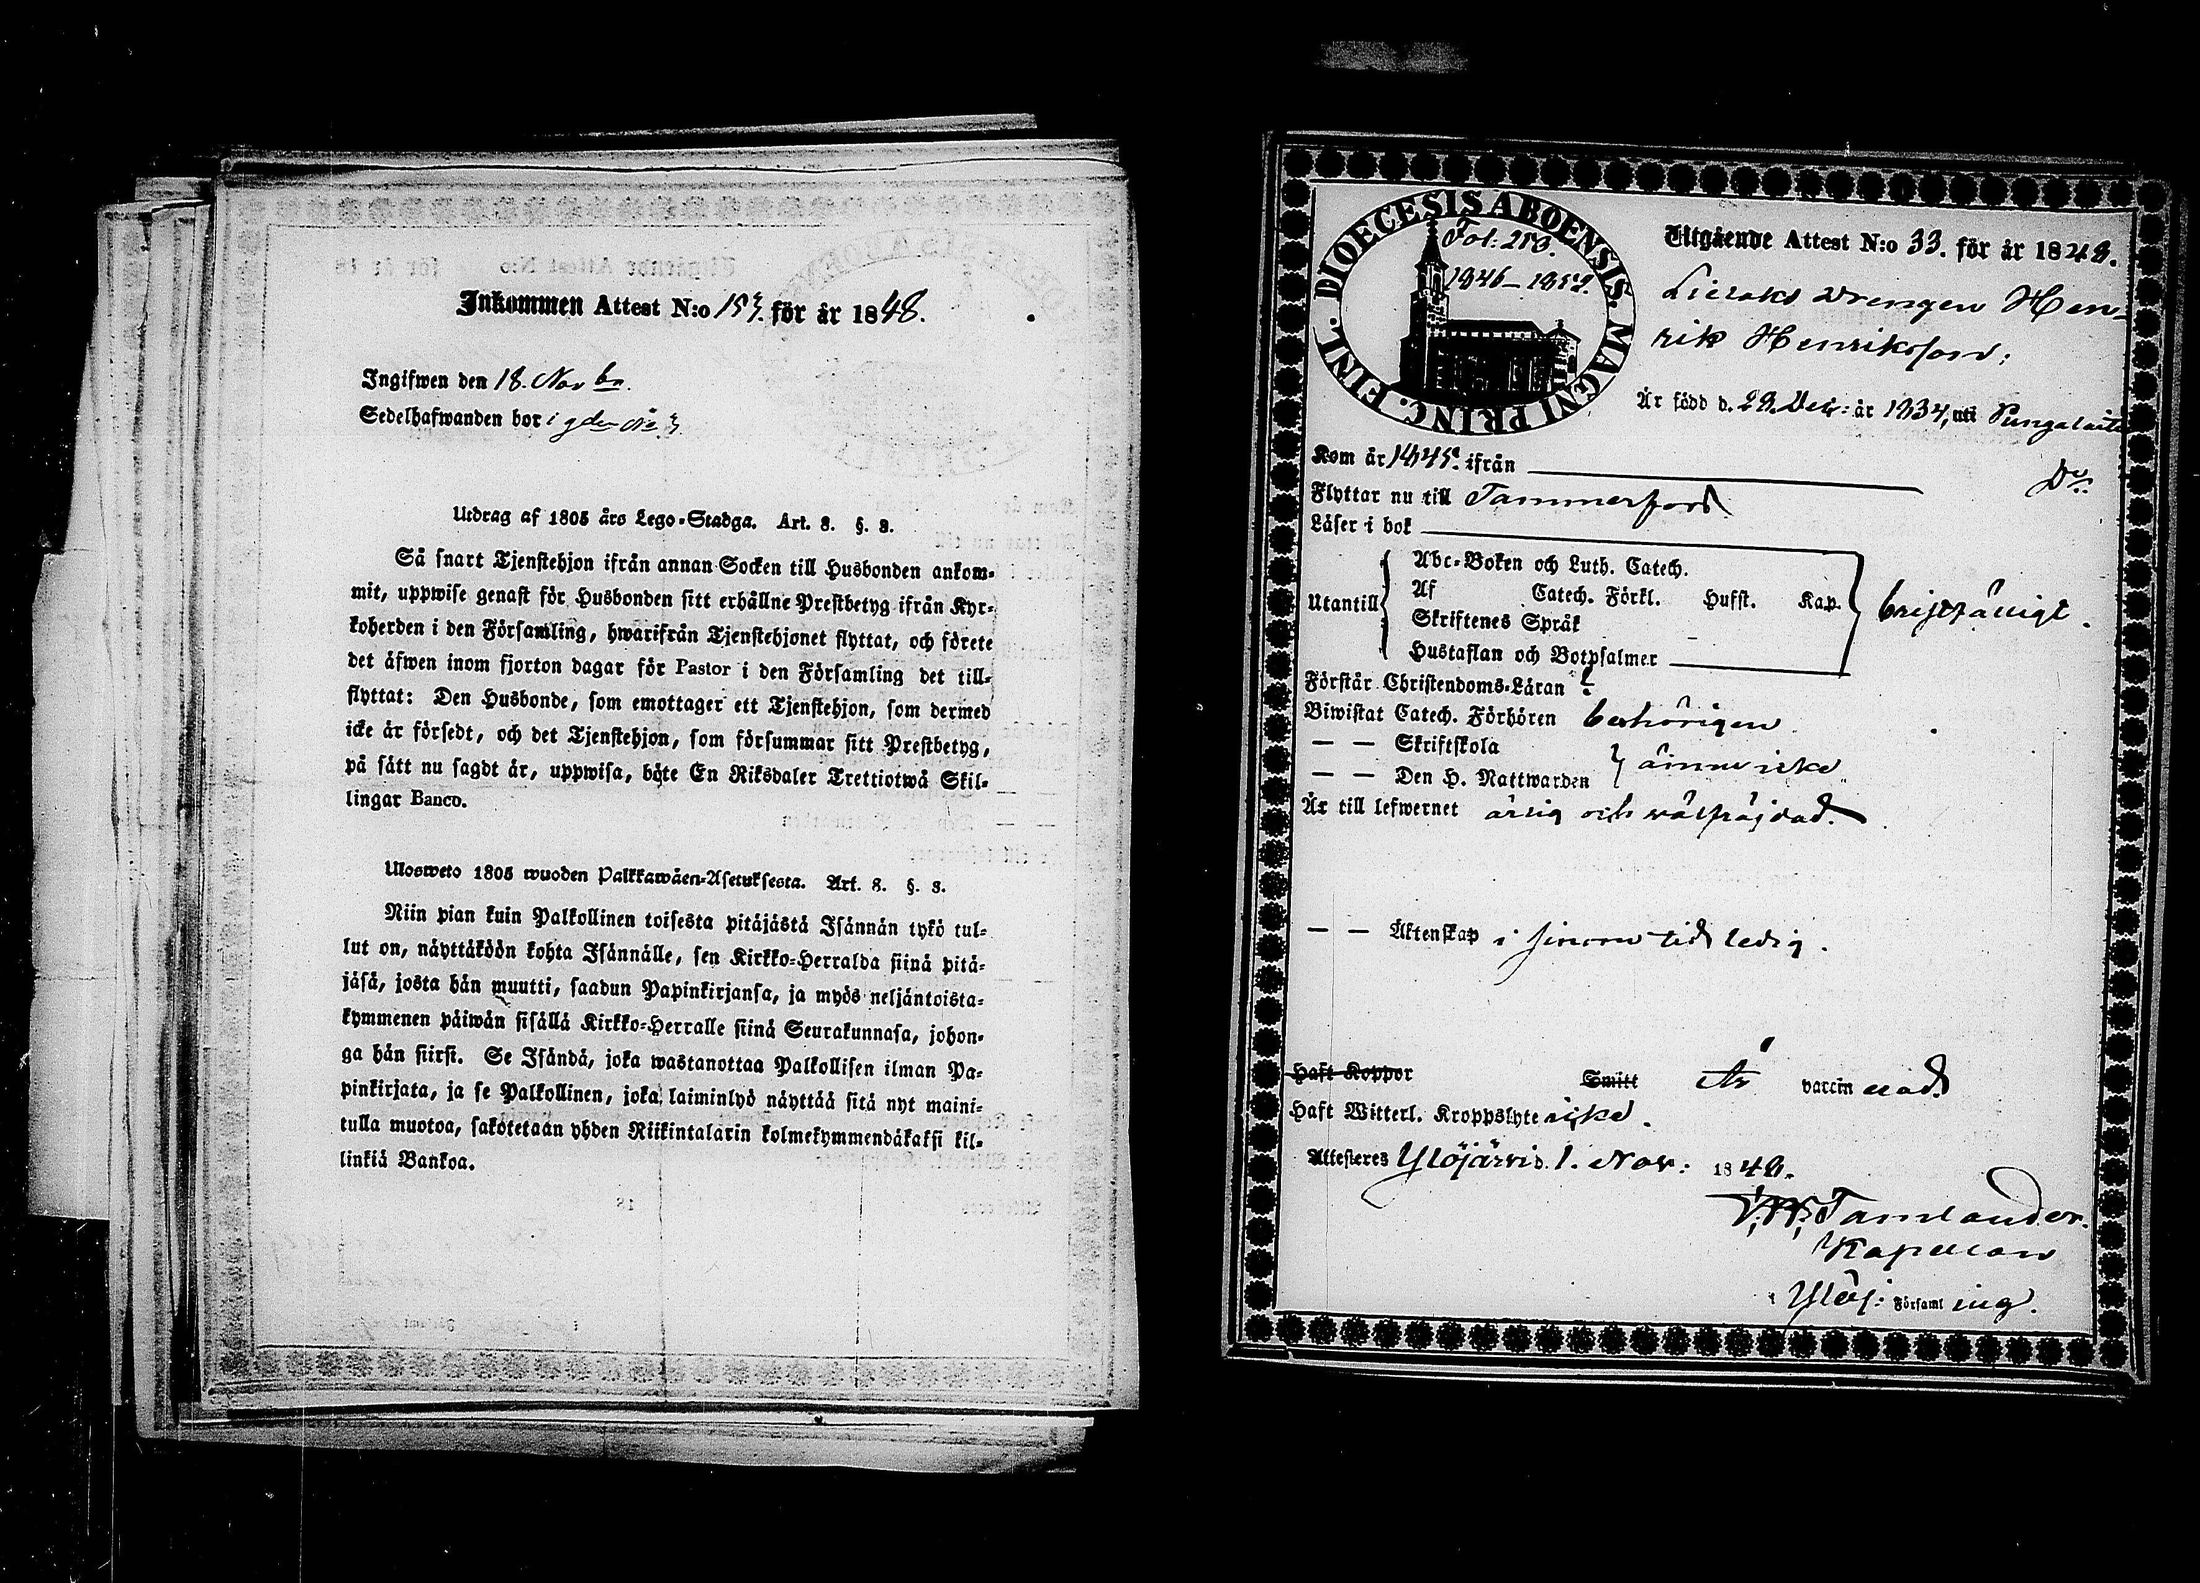 Inkommen Attest N:o 153. för år 1848.
Ingifwen den 18. Novbr.
Sedelhafwanden bor i gden No 3.
Utdrag af 1805 års Lego-Stadga. Art. 8. §. 8.
Så snart Tjenstehjon ifrån annan Socken till Husbonden ankom-
mit, uppwise genast för Husbonden sitt erhållne Prestbetyg ifrån Kyr-
koherden i den Församling, hwarifrån Tjenstehjonet flyttat, och förete
det äfwen inom fjorton dagar för Pastor i den Församling det till-
flyttat: Den Husbonde, som emottager ett Tjenstehjon, som dermed
icke är försedt, och det Tjenstehjon, som försummar sitt Prestbetyg,
på sätt nu sagdt är, uppwisa, böte En Riksdaler Trettiotwå Skil-
lingar Banco.
Ulosweto 1805 wuoden Palkkawäen-Asetuksesta. Art. 8. §. 8.
Niin pian kuin Palkollinen toisesta pitäjästä Isännän tykö tul-
lut on, näyttäköön kohta Isännälle, sen Kirkko-Herralda siinä pitä-
jäsä, josta hän muutti, saadun Papinkirjansa, ja myös neljäntoista-
kymmenen päiwän sisällä Kirkko-Herralle siinä Seurakunnasa, johon-
ga hän siirsi. Se Isändä, joka wastanottaa Palkollisen ilman Pa-
pinkirjata, ja se Palkollinen, joka laiminlyö näyttää sitä nyt maini-
tulla muotoa, sakotetaan yhden Riikintalarin kolmekymmendäkaksi kil-
linkiä Bankoa.
DIOECESIS ABOENSIS. MAGNI PRINC. FINL.
Fol: 213.
1846–1852.
Utgående Attest N:o 33. för år 1848.
Lielaks drengen Hen-
rik Henriksson;
Är född d. 29. Decr: år 1834, uti Pungalaitio
Kom år 1845. ifrån
Flyttar nu till Tammerfors
Läser i bok
Utantill
Abc-Boken och Luth. Catech.
Af Catech. Förkl. Hufst. Kap.
Skriftenes Språk
Hustaflan och Botpsalmer
bristfälligt.
Förstår Christendoms-Läran
Biwistat Catech. Förhören behörigen
— — Skriftskola
— — Den H. Nattwarden
ännu icke
Är till lefwernet ärlig och wälfräjdad.
— — Äktenskap i sinom tid ledig.
Haft Koppor Smitt Är vaccinerad.
Haft Witterl. Kroppslyte icke.
Attesteres Ylöjärvi d. 1. Nov: 1848.
Tamlander.
Kapellan
i Ylöj: Församling.